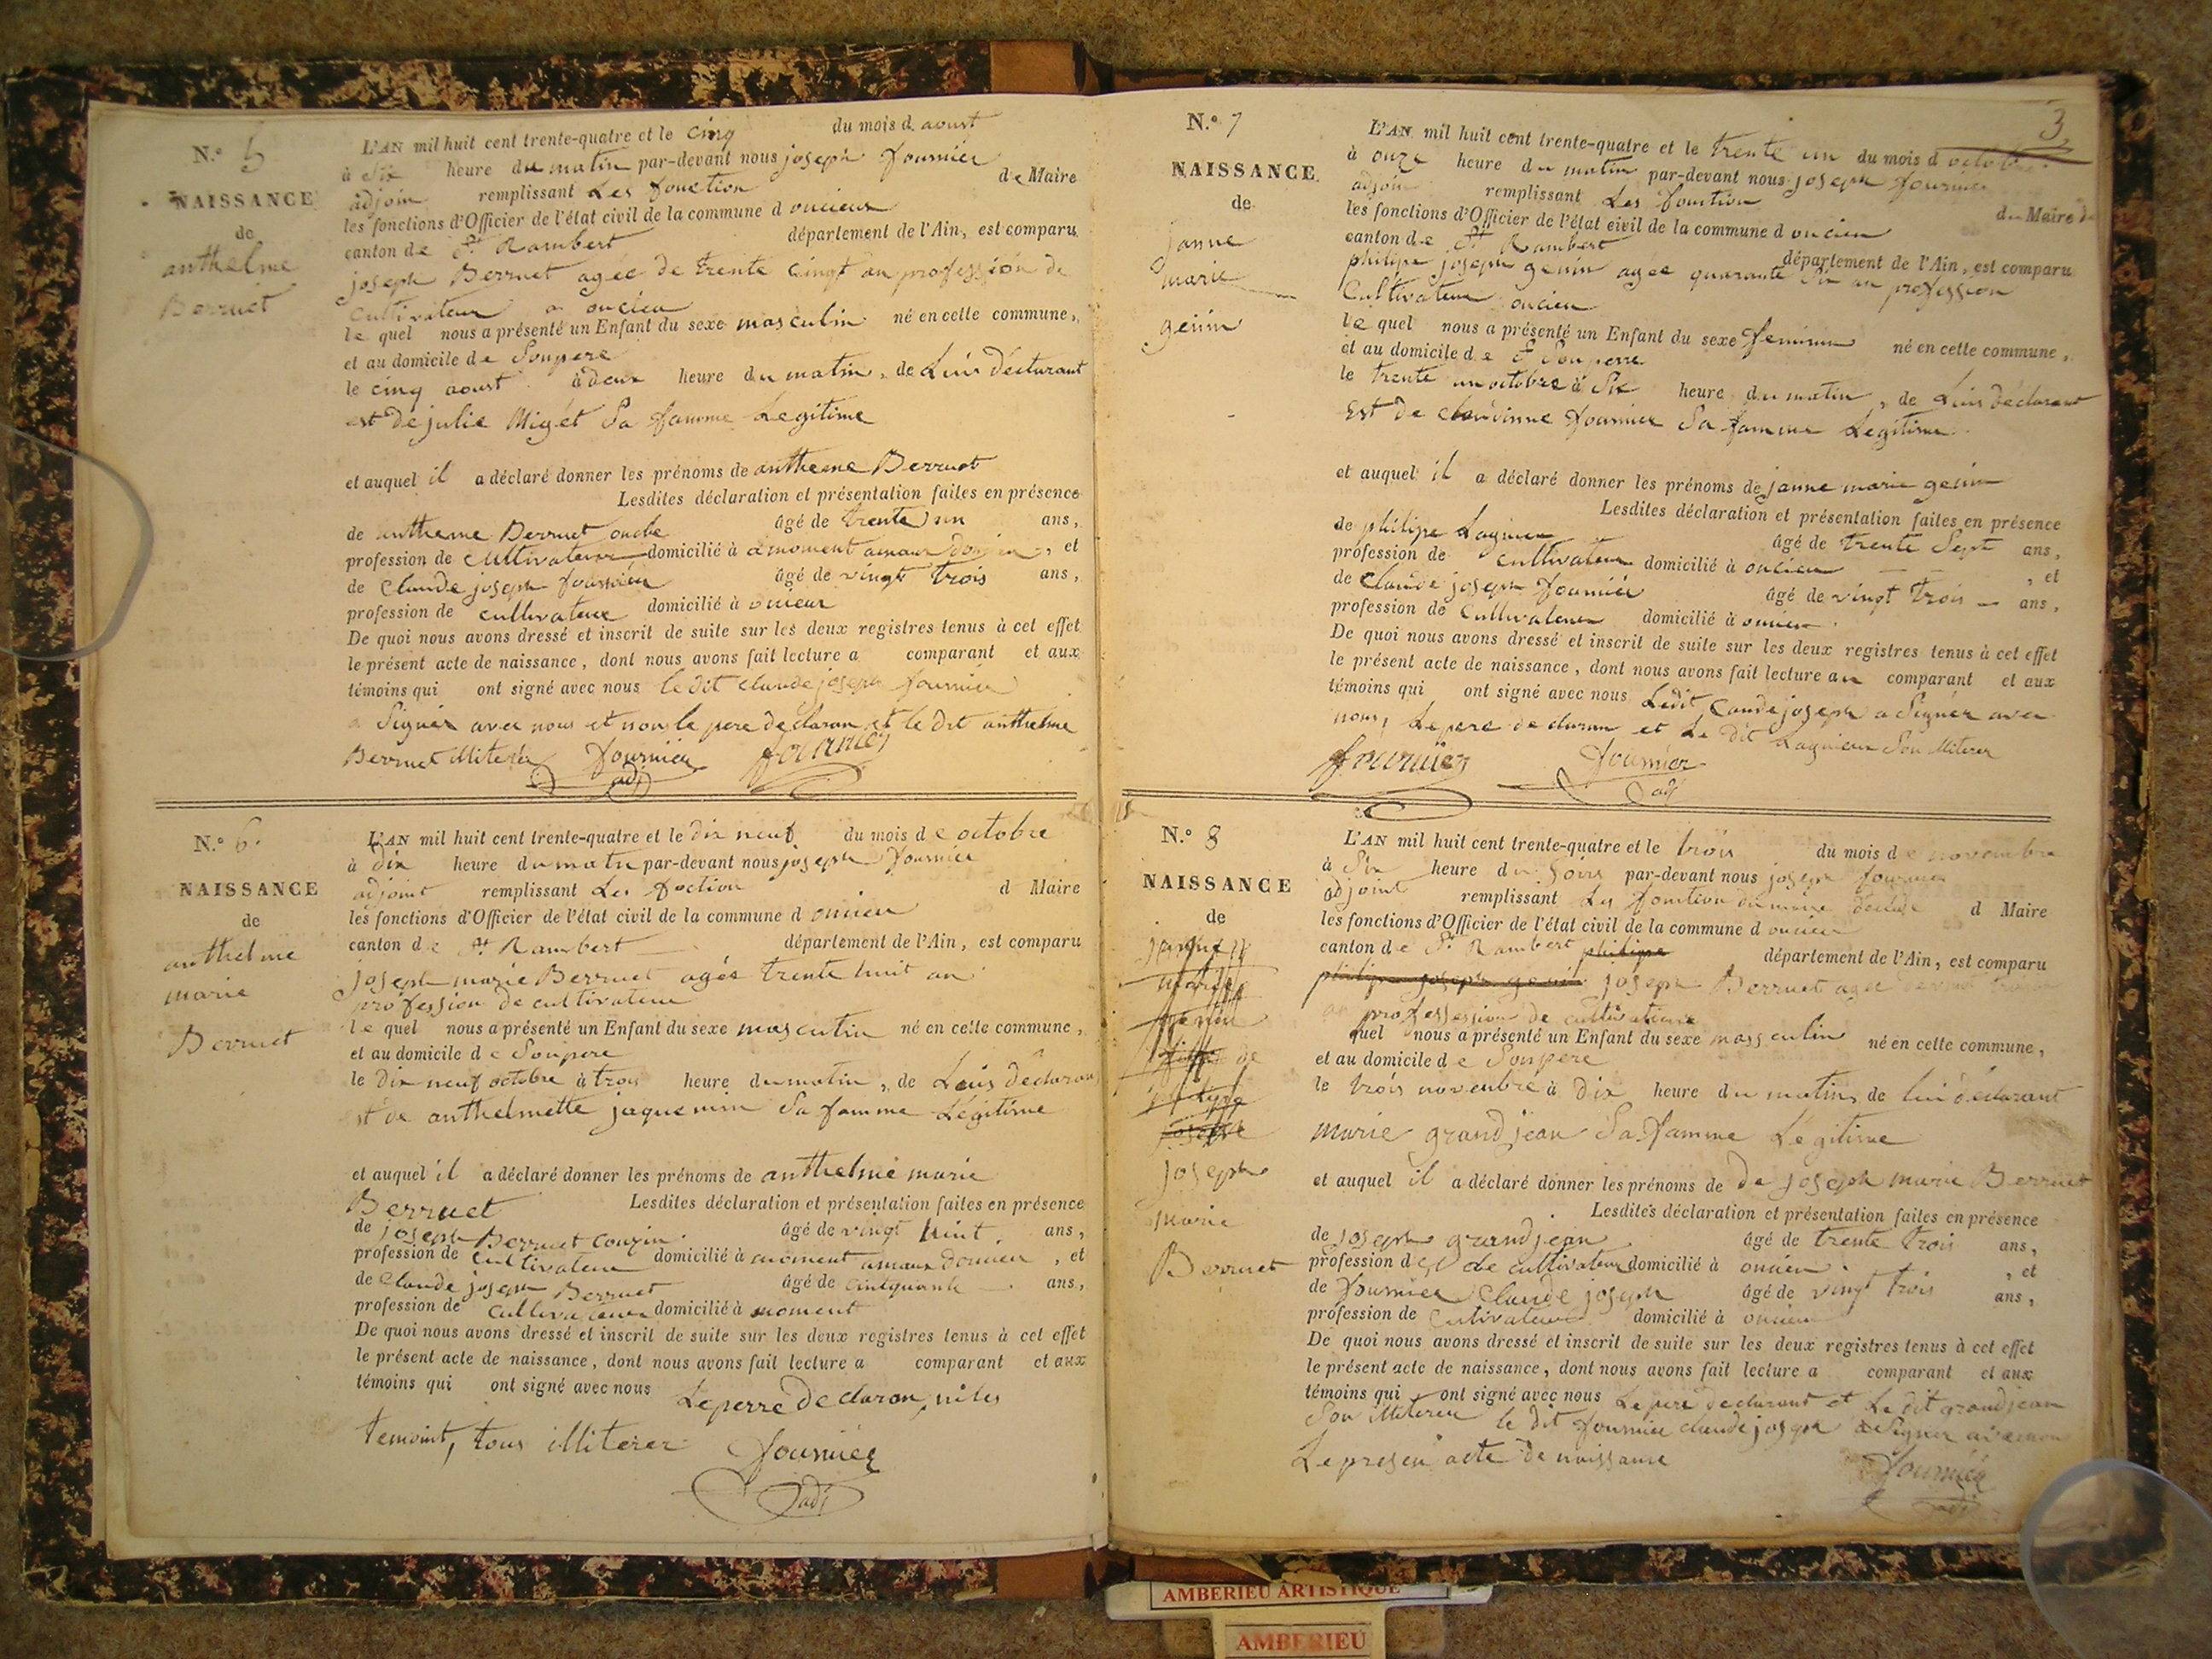 N.º 5
NAISSANCE
de
anthelme
Berruet
L'AN mil huit cent trente-quatre et le cinq du mois d aoust
à Six heure du matin par-devant nous joseph fournier
adjoin remplissant Les fonction de Maire
les fonctions d'Officier de l'état civil de la commune d oncieux
canton de St Rambert département de l'Ain, est comparu
joseph Berruet agée de trente cingt an profession de
cultivateur a oncieu
le quel nous a présenté un Enfant du sexe masculin né en cette commune,
et au domicile de Sonpere
le cinq aoust à deux heure du matin, de Luis déclurant
est de julie Migét Sa famme Legitime
et auquel il a déclaré donner les prénoms de antheme Berruet
Lesdites déclaration et présentation faites en présence
de antheme Berruet oncle âgé de trente un ans,
profession de cultivateur domicilié à amoment , et
de Claude joseph fournier âgé de vingt trois ans,
profession de cultivateur domicilié à oncieux
De quoi nous avons dressé et inscrit de suite sur les deux registres tenus à cet effet
le présent acte de naissance, dont nous avons fait lecture a comparant et aux
témoins qui ont signé avec nous le dit Claude joseph fournier
a Signér avec nous et non le pere déclaran et le dit anthelme
Berruet illiterér fournier fournier
adj
N.º 6
NAISSANCE
de
anthelme
marie
Berruet
L'AN mil huit cent trente-quatre et le dix neuf du mois de octobre
à dix heure du matin par-devant nous joseph fournier
adjoint remplissant Les foction d Maire
les fonctions d'Officier de l'état civil de la commune d oncieu
canton de St Rambert département de l'Ain, est comparu
joseph marie Berruet agés trente huit an
profession de cultivateur
le quel nous a présenté un Enfant du sexe masculin né en cette commune,
et au domicile de Sonpere
le Dix neuf octobre à trois heure du matin, de Luis déclaran
st de anthelmette jaquemin Sa famme Légitime
et auquel il a déclaré donner les prénoms de anthelme marie
Berruet Lesdites déclaration et présentation faites en présence
de joseph Berruet Couzin âgé de vingt huit ans,
profession de cultivateur domicilié à moment , et
de Claude joseph Berruet âgé de cintquante ans,
profession de cultivateur domicilié à moment
De quoi nous avons dressé et inscrit de suite sur les deux registres tenus à cet effet
le présent acte de naissance, dont nous avons fait lecture a comparant et aux
témoins qui ont signé avec nous Le perre declaran, ni les
temoint, tous illiterer fournier
adj
3
N.º 7
NAISSANCE
de
janne
marie
genin
L'AN mil huit cent trente-quatre et le trente un du mois d octobre
à onze heure du matin par-devant nous joseph fournier
adjoin remplissant Les fonction du Maire
les fonctions d'Officier de l'état civil de la commune d oncieu
canton de St Rambert département de l'Ain, est comparu
philipe joseph genin agée quarante Six an profession
Cultivateur oncieu
le quel nous a présenté un Enfant du sexe feminin né en cette commune,
et au domicile de Son perre
le trente un octobre à Six heure du matin, de Luis déclarant
Est de claudinne fournier Sa famme Legitime
et auquel il a déclaré donner les prénoms de janne marie genin
Lesdites déclaration et présentation faites en présence
de philipe Lagnieu âgé de trente Sept ans,
profession de cultivateur domicilié à oncieu , et
de Claude joseph fournier âgé de vingt trois ans,
profession de Cultivateur domicilié à oncieu
De quoi nous avons dressé et inscrit de suite sur les deux registres tenus à cet effet
le présent acte de naissance, dont nous avons fait lecture au comparant et aux
témoins qui ont signé avec nous Ledit Caude joseph a Signér avec
nous, Le pere declaran et Le Dit Lagnieu Son illiterer
fournier fournier
adj
N.º 8
NAISSANCE
de
joseph
marie
Berruet
L'AN mil huit cent trente-quatre et le trois du mois de novembre
à Six heure du Soirs par-devant nous joseph fournier
adjoint remplissant Les fonction d Maire
les fonctions d'Officier de l'état civil de la commune d oncieu
canton de St Rambert philipe département de l'Ain, est comparu
philipe joseph genin joseph Berruet agée
an professession de cultivateur
quel nous a présenté un Enfant du sexe massculin né en cette commune,
et au domicile de Sonpere
le trois novembre à Dix heure du matin, de lui déclarant
marie grandjean Sa famme Légitime
et auquel il a déclaré donner les prénoms de de joseph marie Berruet
Lesdites déclaration et présentation faites en présence
de joseph grandjean âgé de trente trois ans,
profession de de cultivateur domicilié à oncieu , et
de fournier Claude joseph âgé de vingt trois ans,
profession de cultivateur domicilié à oncieu
De quoi nous avons dressé et inscrit de suite sur les deux registres tenus à cet effet
le présent acte de naissance, dont nous avons fait lecture a comparant et aux
témoins qui ont signé avec nous Le pere declarant et Le dit grandjean
Son illiterer le dit fournier claude joseph a Signer
Le presen acte de naissance
fournier
adj
AMBERIEU ARTISTIQUE
AMBERIEU